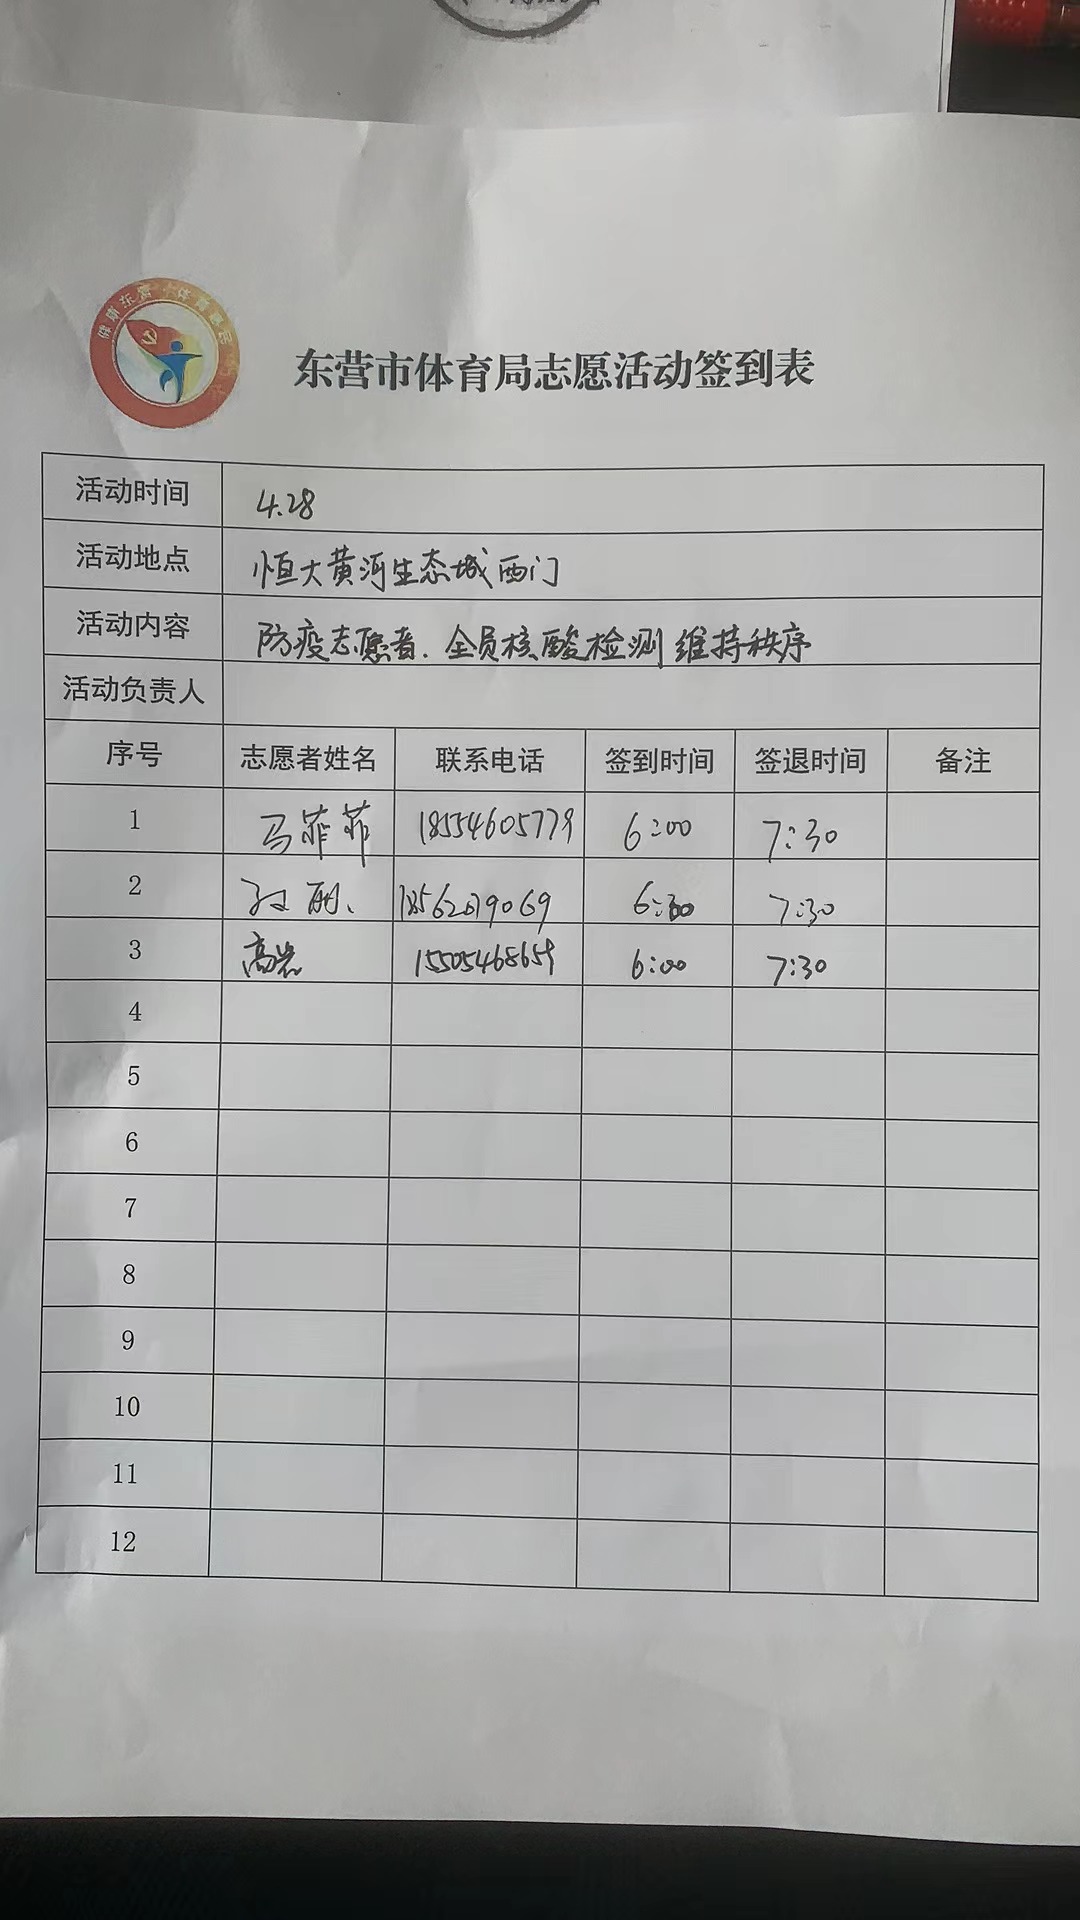 东营市体育局志愿活动签到表
活动时间 4.28
活动地点 恒大黄河生态城西门
活动内容 防疫志愿者、全员核酸检测维持秩序
活动负责人
序号 志愿者姓名 联系电话 签到时间 签退时间 备注
1 马菲菲 18554605779 6:00 7:30
2 孙丽 6:30 7:30
3 高岩 15505468659 6:00 7:30
4
5
6
7
8
9
10
11
12